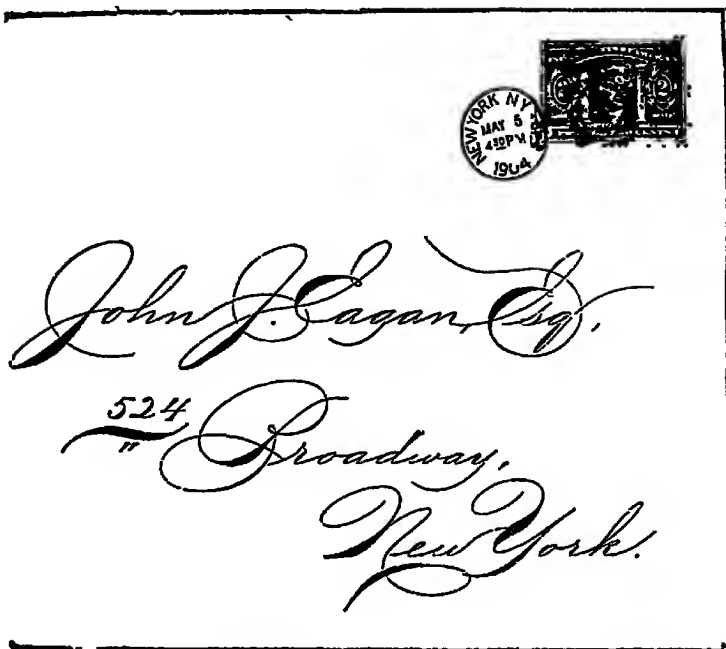 NEW YORK NY
MAY 5
430PM
1904
2
John J. Eagan, Esq.,
524
Broadway,
New York.